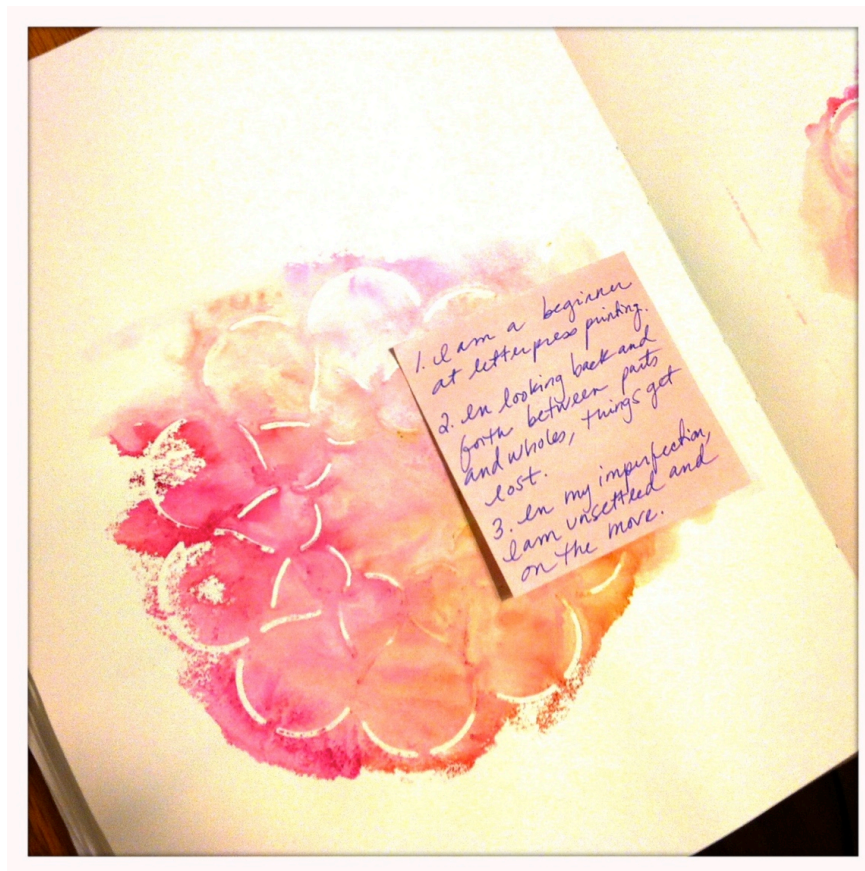 1. I am a beginner
at letterpress printing.
2. In looking back and
forth between parts
and wholes, things get
lost.
3. In my imperfection,
I am unsettled and
on the move.